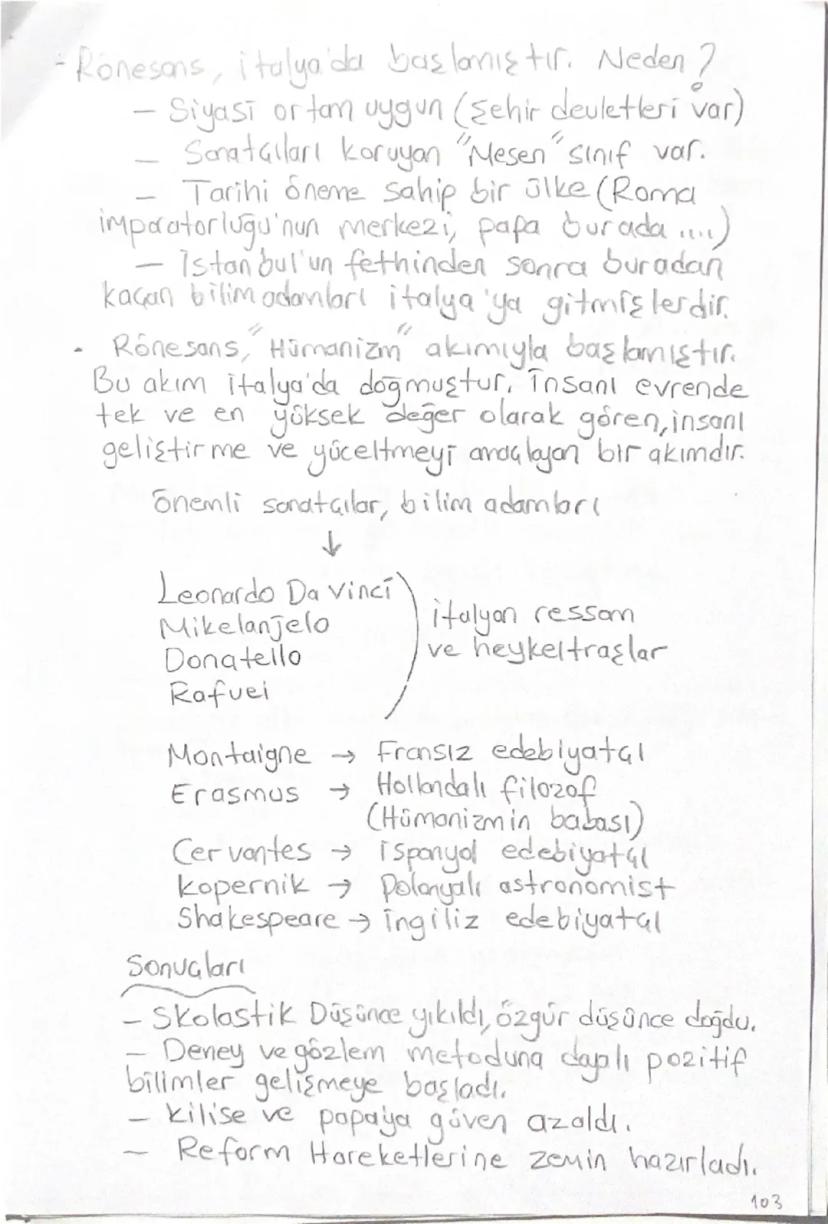 - Rönesans, italya'da başlamıştır. Neden?
- Siyasi ortam uygun (Şehir devletleri var)
- Sanatçıları koruyan "Mesen" sınıf var.
- Tarihi öneme sahip bir ülke (Roma
imparatorluğu'nun merkezi, papa burada ....)
- İstanbul'un fethinden sonra buradan
kaçan bilim adamları italya'ya gitmişlerdir.
- Rönesans, "Hümanizm" akımıyla başlamıştır.
Bu akım italya'da doğmuştur. İnsanı evrende
tek ve en yüksek değer olarak gören, insanı
geliştirme ve yüceltmeyi amaçlayan bir akımdır.
önemli sanatçılar, bilim adamları
↓
Leonardo Da Vinci
Mikelanjelo
Donatello
Rafuei
italyan ressam
ve heykeltraşlar
Montaigne → Fransız edebiyatçı
Erasmus → Hollandalı filozof
(Hümanizmin babası)
Cervantes → ispanyol edebiyatçı
Kopernik → Polonyalı astronomist
Shakespeare → ingiliz edebiyatçı
Sonuçları
- Skolastik Düşünce yıkıldı, özgür düşünce doğdu.
- Deney ve gözlem metoduna dayalı pozitif
bilimler gelişmeye başladı.
- Kilise ve papa'ya güven azaldı.
- Reform Hareketlerine zemin hazırladı.
103